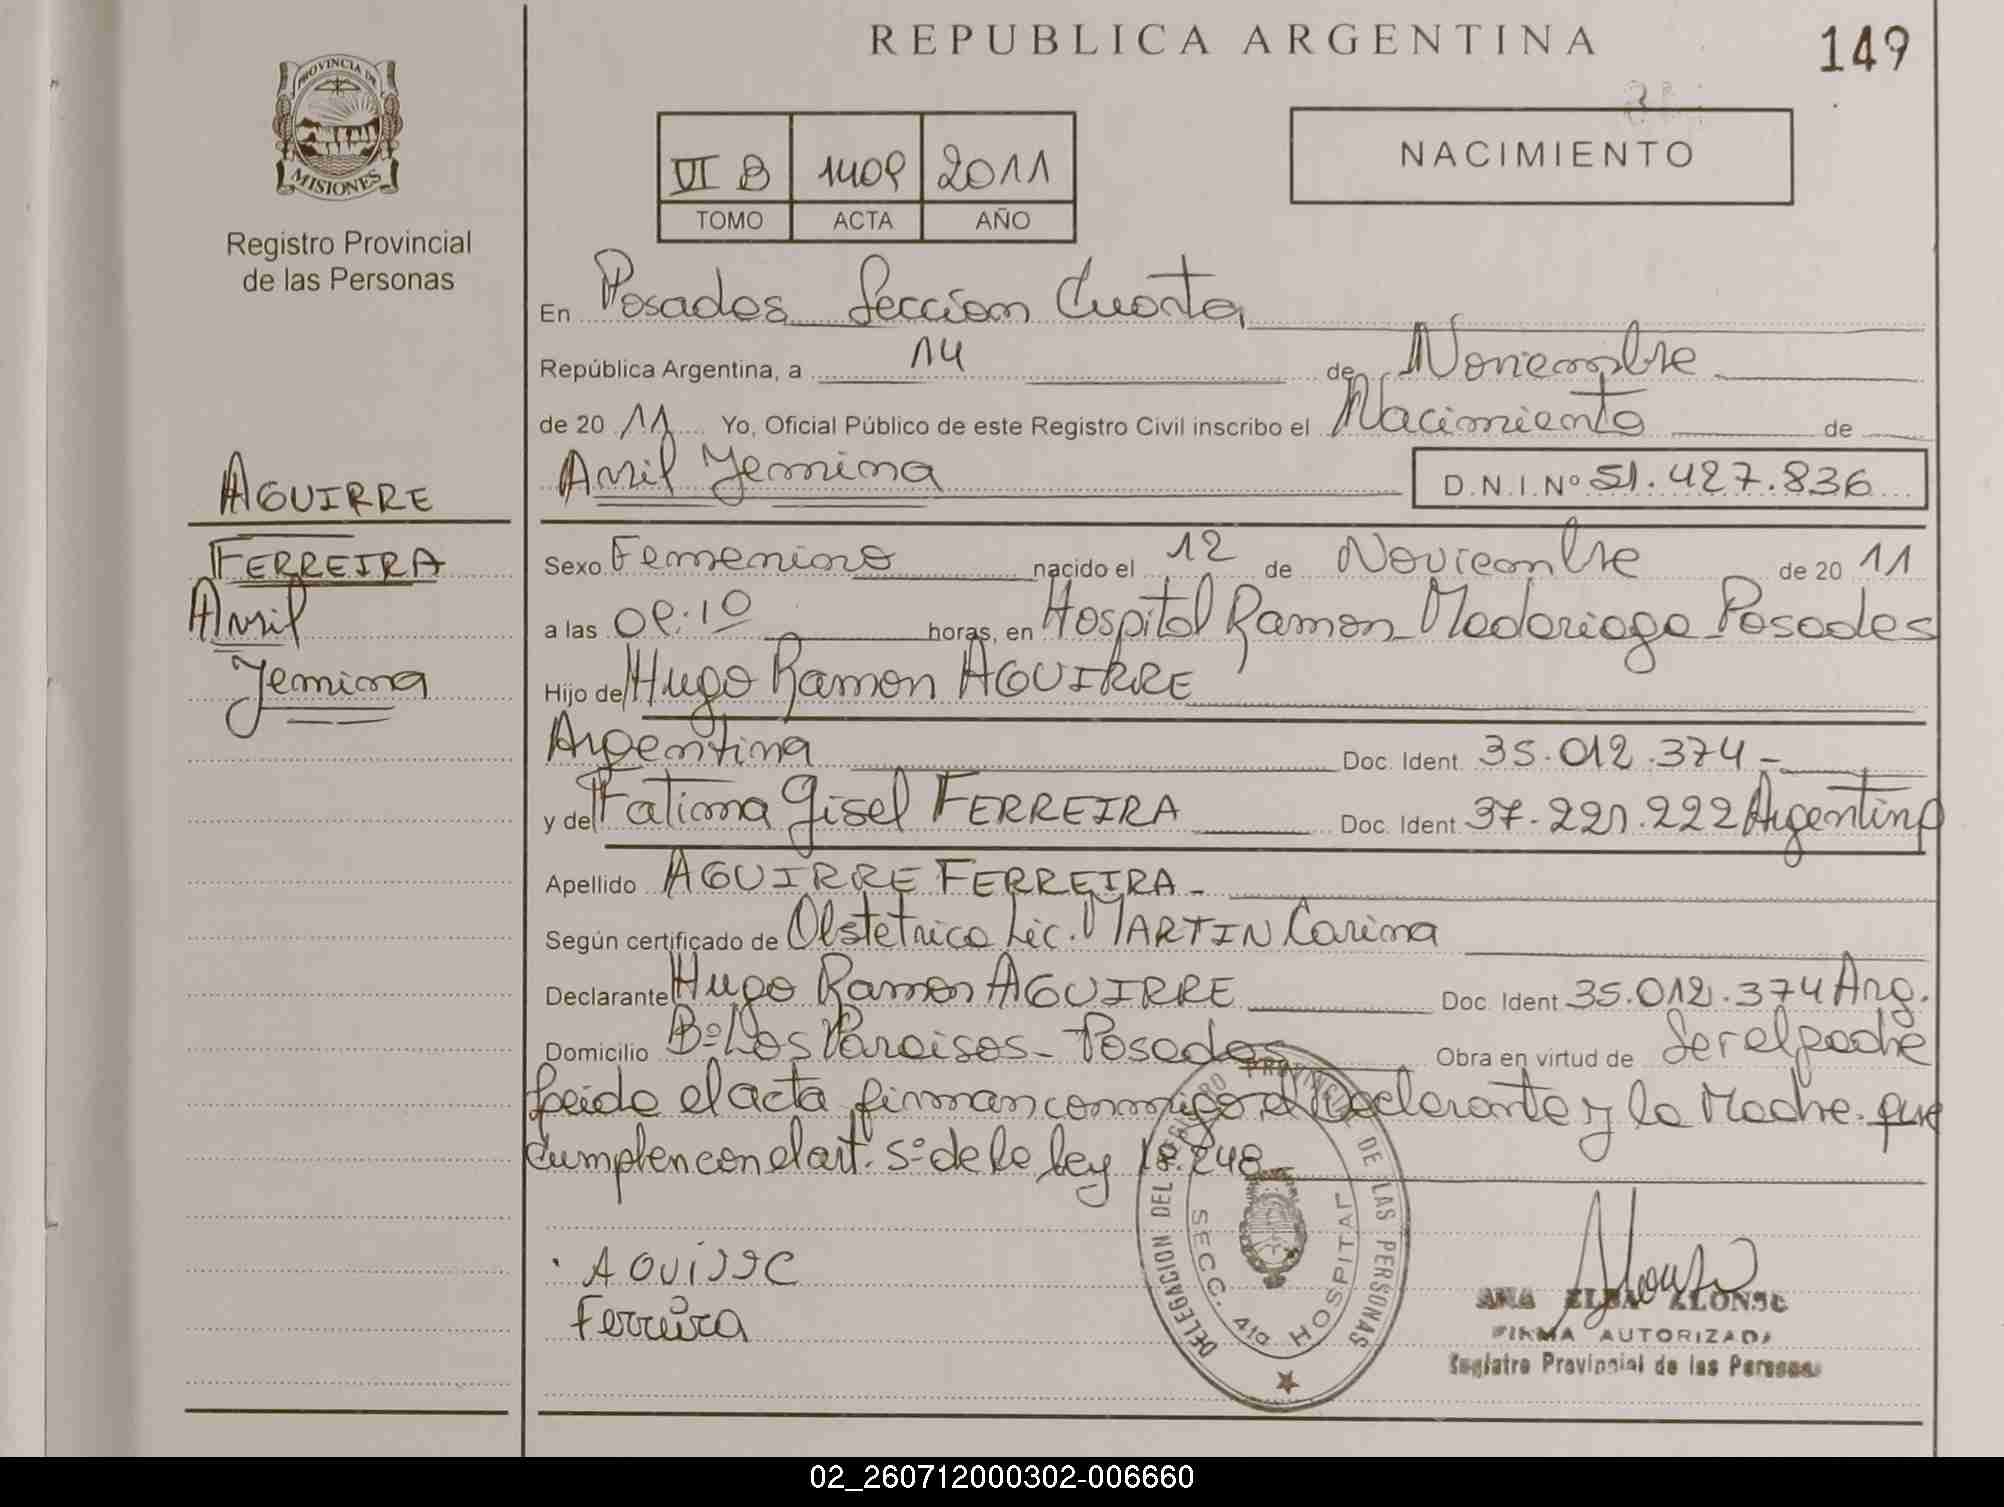 REPUBLICA ARGENTINA
149
PROVINCIA DE
MISIONES
Registro Provincial
de las Personas
VI B 1409 2011
TOMO ACTA AÑO
NACIMIENTO
En Posadas Seccion Cuarta
República Argentina, a 14 de Noviembre
de 20 11 Yo, Oficial Público de este Registro Civil inscribo el Nacimiento de
Abril Jemima D.N.I. Nº 51.427.836
AGUIRRE
FERREIRA
Abril
Jemima
Sexo Femenino nacido el 12 de Noviembre de 20 11
a las 09:10 horas, en Hospital Ramon Madariaga Posadas
Hijo de Hugo Ramon AGUIRRE
Argentina Doc. Ident. 35.012.374-
y de Fatima Gisel FERREIRA Doc. Ident. 37.221.222 Argentina
Apellido AGUIRRE FERREIRA-
Según certificado de Obstetrica Lic. MARTIN Carina
Declarante Hugo Ramon AGUIRRE Doc. Ident. 35.012.374 Arg.
Domicilio Bº Los Paraisos- Posadas Obra en virtud de Ser el padre
Leida el acta firman conmigo el Declarante y la Madre. que
cumplen con el art. 5º de la ley 18.248
AGUIRRE
Ferreira
DELEGACION DEL REGISTRO PROVINCIAL DE LAS PERSONAS
SECC. 4ta HOSPITAL
Alonso
ANA ELBA ALONSO
FIRMA AUTORIZADA
Registro Provincial de las Personas
02_260712000302-006660